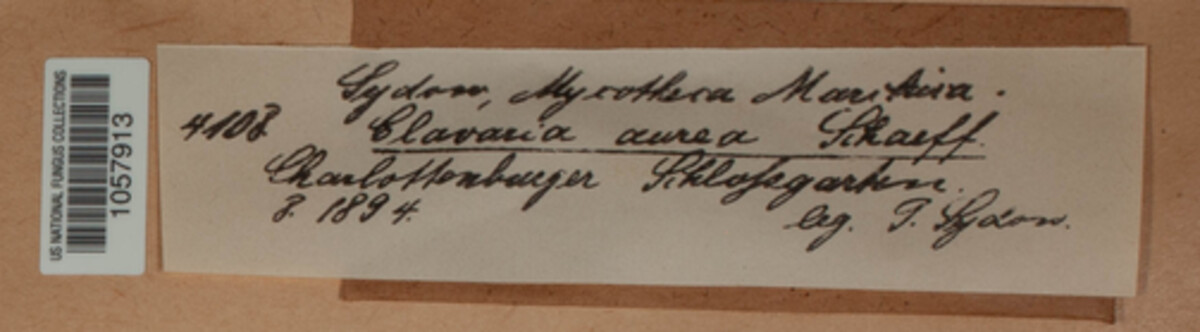 US NATIONAL FUNGUS COLLECTIONS
1057913
Sydow, Mycotheca Marchica.
4108 Clavaria aurea Schaeff.
Charlottenburger Schloßgarten.
8. 1894.
leg. P. Sydow.